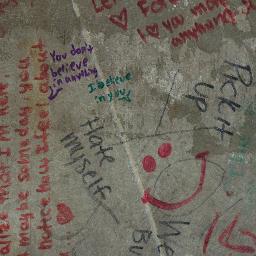 Le
Fo
I love you more
anything
You don't
believe
in anything
I believe
in you
Pick it
up
Hate
myself
alize that I'm here
maybe someday you
notice how I feel about
We
Bu